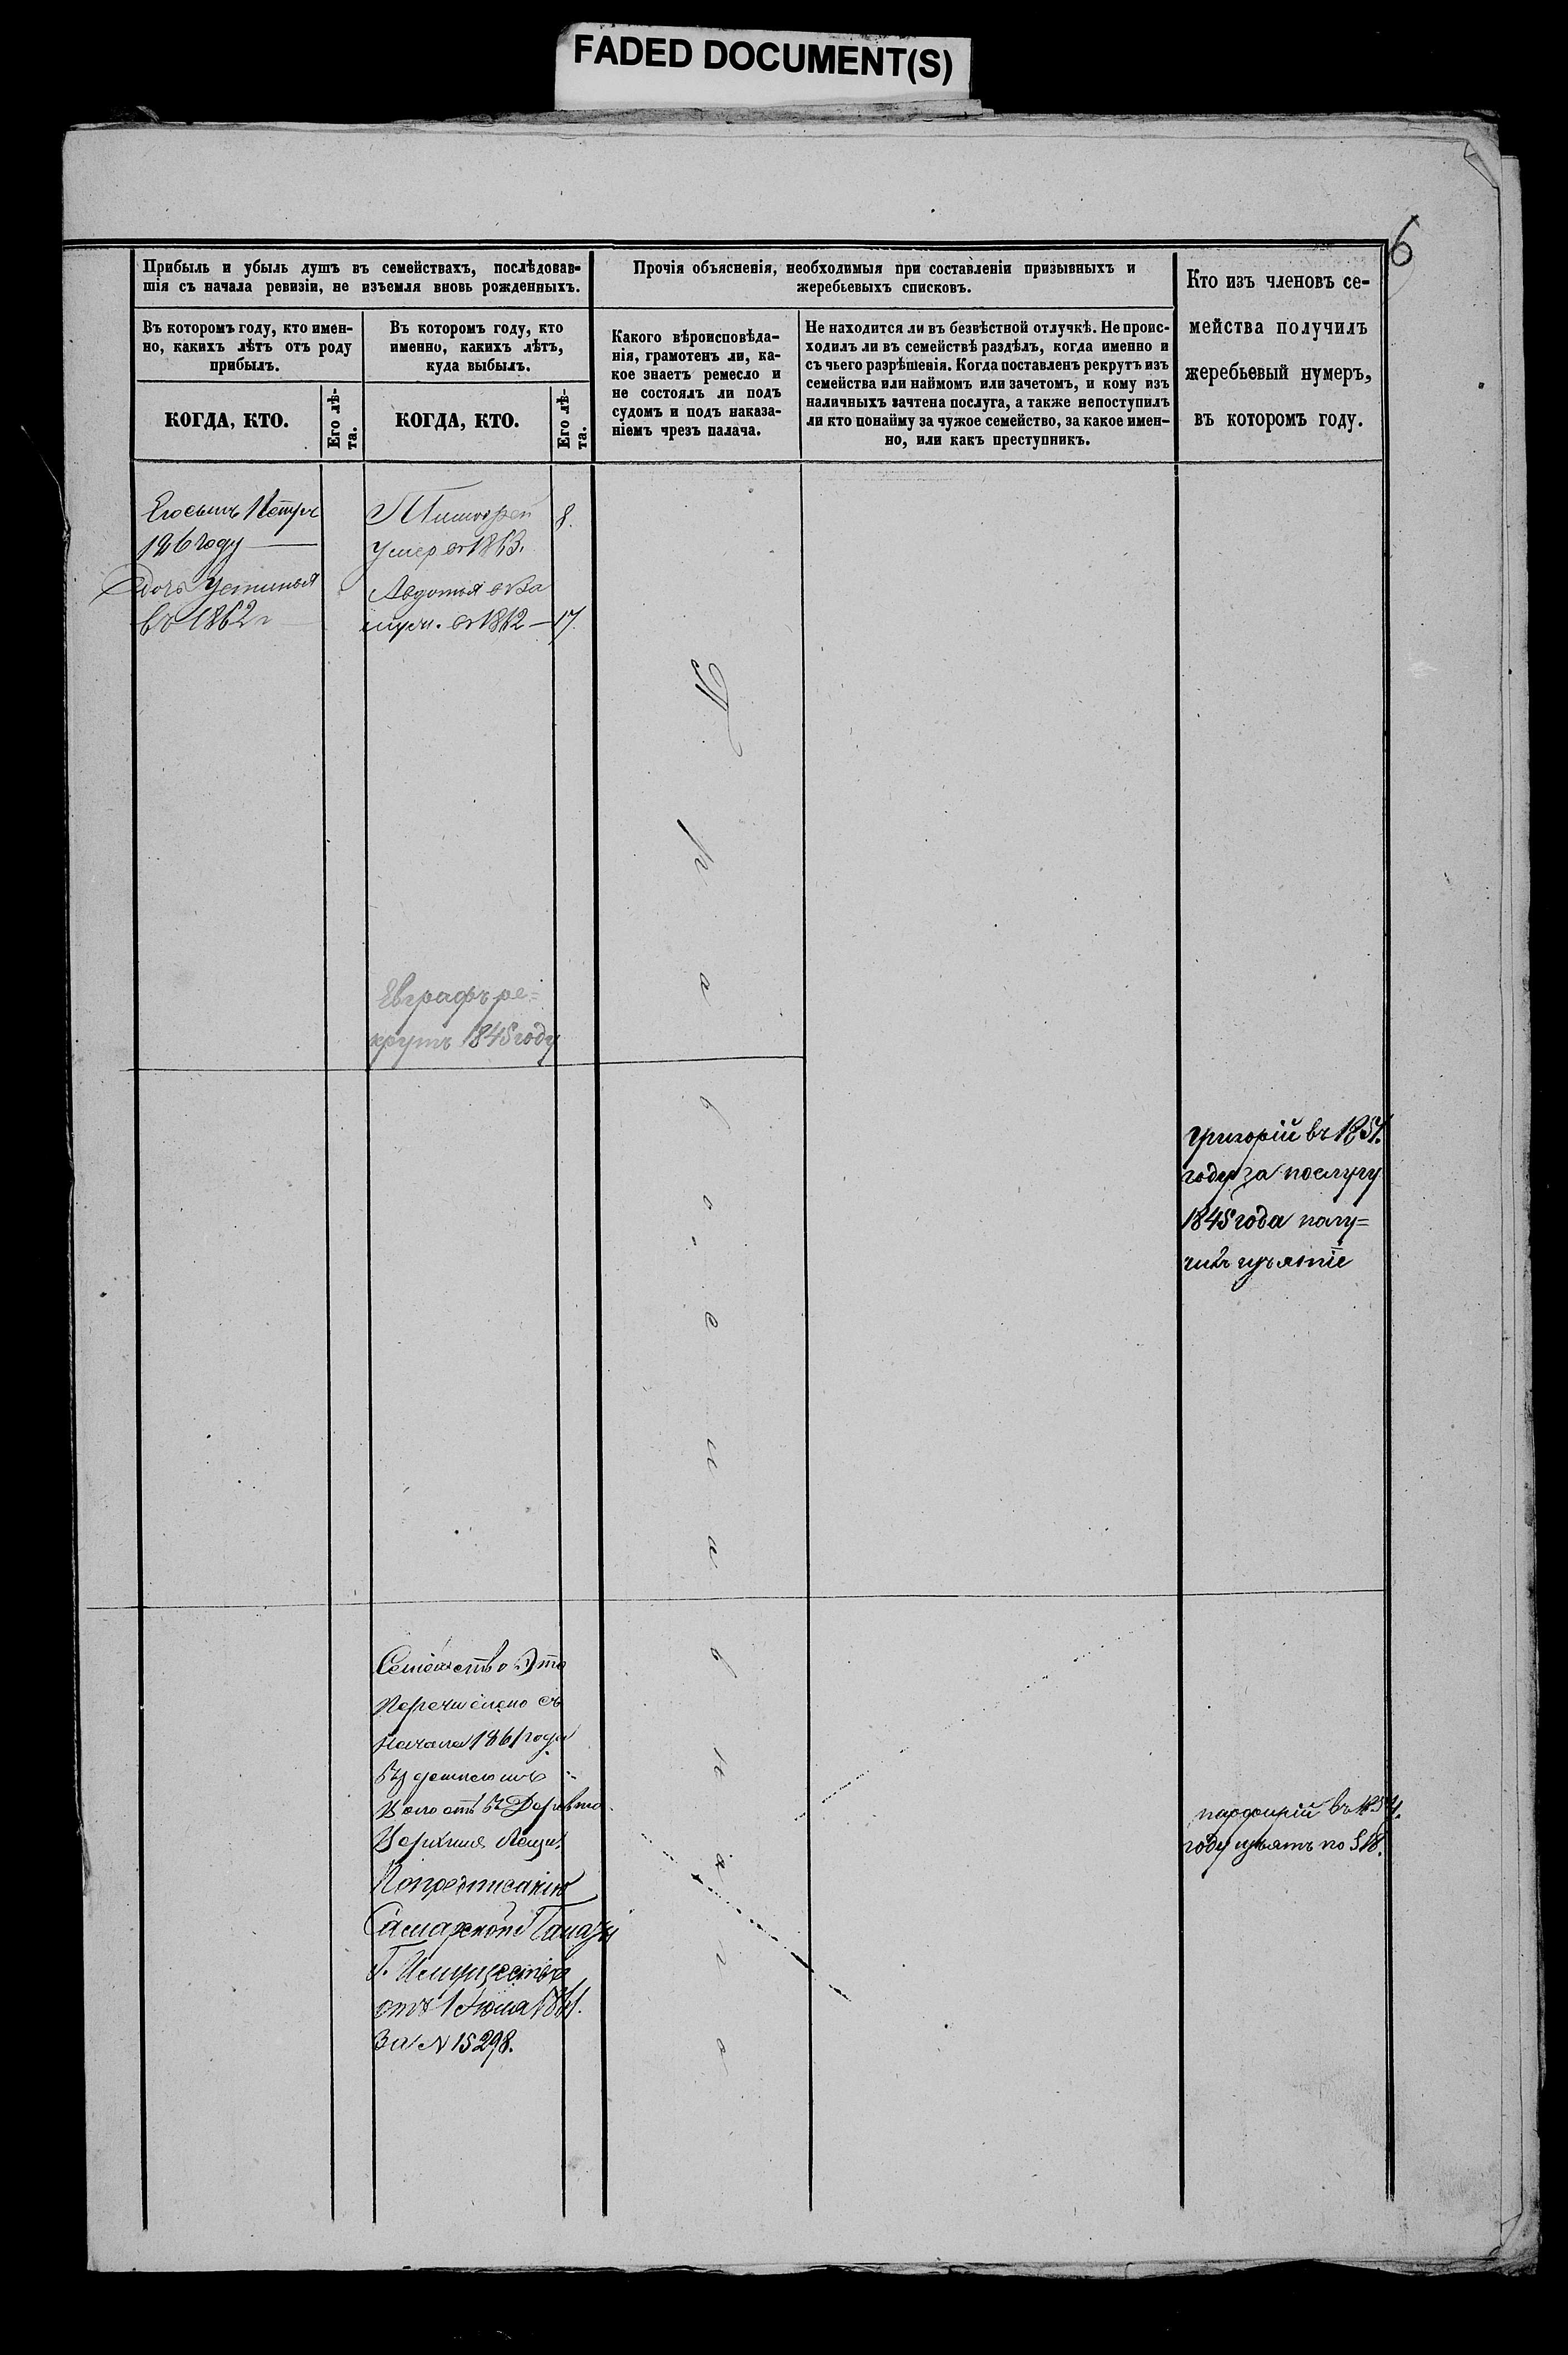 FADED DOCUMENT(S)
6
Прибыль и убыль душъ въ семействахъ, послѣдовав-
шія съ начала ревизіи, не изъемля вновь рожденныхъ.
Прочія объясненія, необходимыя при составленіи призывныхъ и
жеребьевыхъ списковъ.
Кто изъ членовъ се-
мейства получилъ
жеребьевый нумеръ,
въ которомъ году.
Въ которомъ году, кто имен-
но, какихъ лѣтъ отъ роду
прибылъ.
Въ которомъ году, кто
именно, какихъ лѣтъ,
куда выбылъ.
Какого вѣроисповѣда-
нія, грамотенъ ли, ка-
кое знаетъ ремесло и
не состоялъ ли подъ
судомъ и подъ наказа-
ніемъ чрезъ палача.
Не находится ли въ безвѣстной отлучкѣ. Не проис-
ходилъ ли въ семействѣ раздѣлъ, когда именно и
съ чьего разрѣшенія. Когда поставленъ рекрутъ изъ
семейства или наймомъ или зачетомъ, и кому изъ
наличныхъ зачтена послуга, а также непоступилъ
ли кто понайму за чужое семейство, за какое имен-
но, или какъ преступникъ.
КОГДА, КТО.
Его лѣ-
та.
КОГДА, КТО.
Его лѣ-
та.
Его сынъ Петръ
186 году
Дочь Устинья
въ 1862 г
Тимофей 8.
умер въ 1863.
Авдотья въ За
муж. въ 1862 — 17
Евграфъ ре=
крутъ 1845 году
Григорій въ 1854.
году за послугу
1845 года полу=
чилъ изъятіе
Семейство Это
Перечислено съ
Начала 1861 года
Верхнія
По предписанію
Самарской Палаты
Г. Имуществъ
отъ 1 Іюля 1861.
За N 15298.
въ 1854.
году изъятъ по § 18.
Православнаго